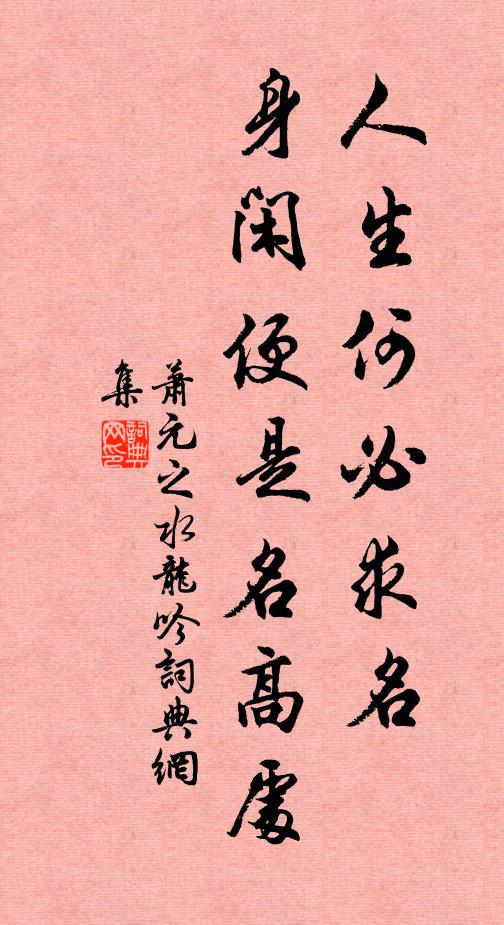 人生何必求名
身閑便是名高處
蕭元之水龍吟詞典網
集
詞典網印